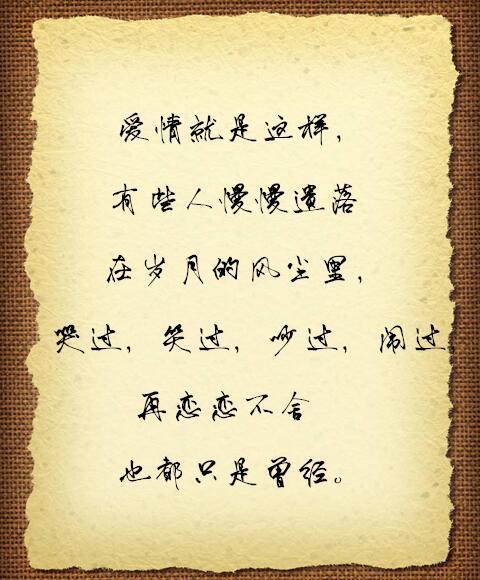 爱情就是这样，
有些人慢慢遗落
在岁月的风尘里，
哭过，笑过，吵过，闹过
再恋恋不舍
也都只是曾经。